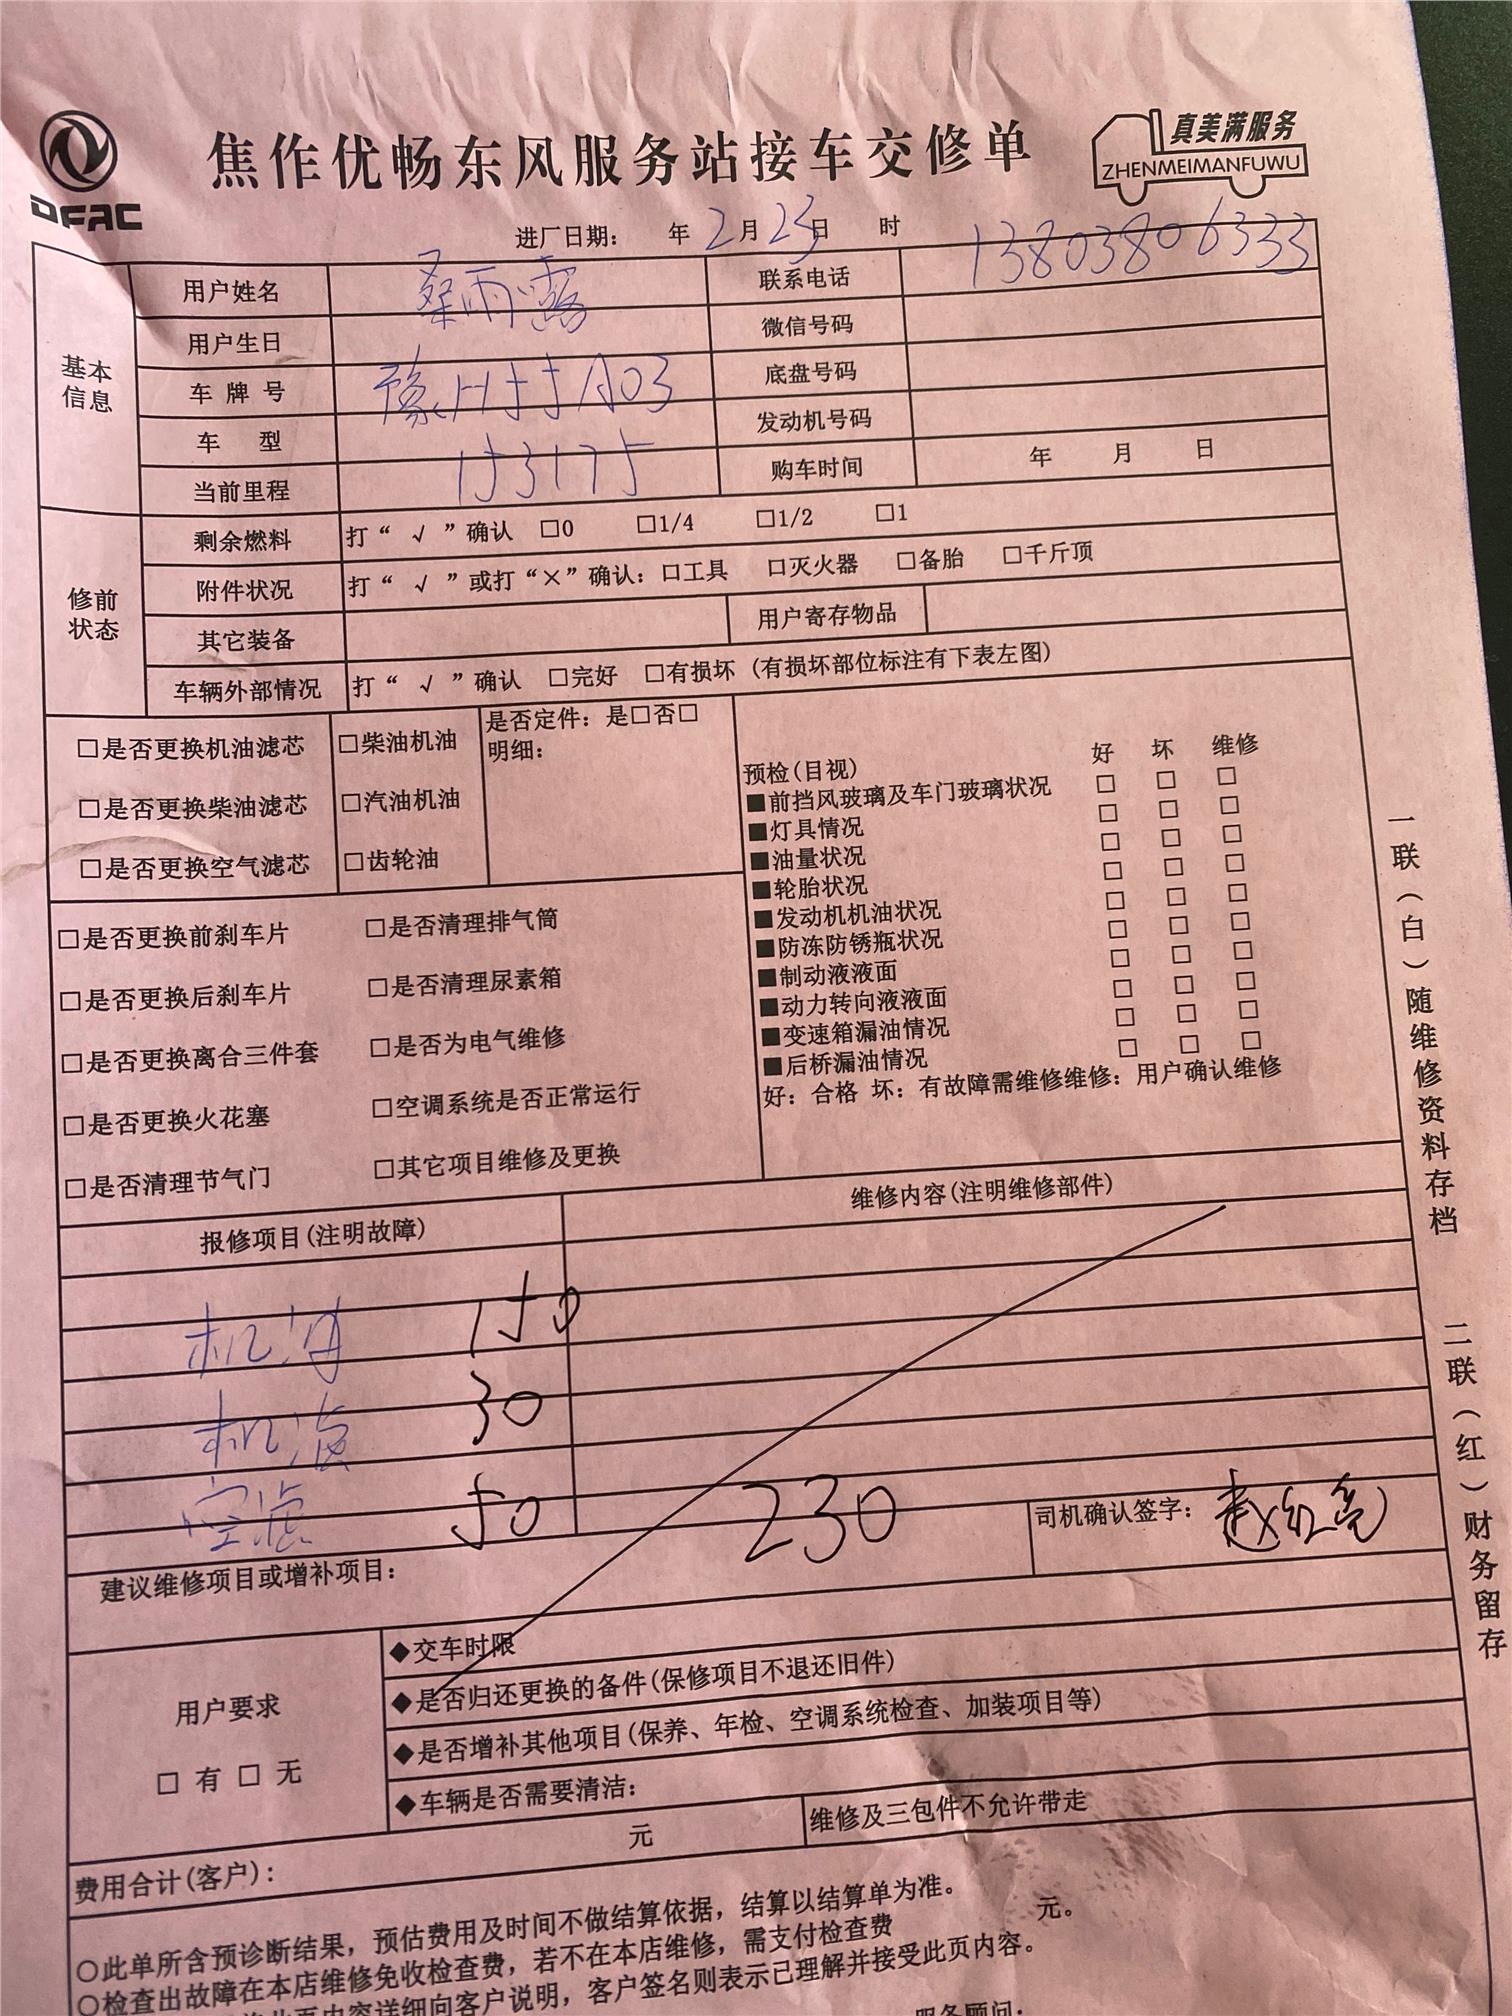 DFAC
焦作优畅东风服务站接车交修单
真美满服务
ZHENMEIMANFUWU
进厂日期: 年 2月 23日 时
基本信息
用户姓名 桑雨露 联系电话 13803806333
用户生日 微信号码
车牌号 豫H55A03 底盘号码
车型 发动机号码
当前里程 153175 购车时间 年 月 日
修前状态
剩余燃料 打“ √ ”确认 □0 □1/4 □1/2 □1
附件状况 打“ √ ”或打“×”确认: □工具 □灭火器 □备胎 □千斤顶
其它装备 用户寄存物品
车辆外部情况 打“ √ ”确认 □完好 □有损坏 (有损坏部位标注有下表左图)
□是否更换机油滤芯 □柴油机油 是否定件: 是□否□
明细:
□是否更换柴油滤芯 □汽油机油
□是否更换空气滤芯 □齿轮油
预检(目视) 好 坏 维修
■前挡风玻璃及车门玻璃状况 □ □ □
■灯具情况 □ □ □
■油量状况 □ □ □
■轮胎状况 □ □ □
■发动机机油状况 □ □ □
■防冻防锈瓶状况 □ □ □
■制动液液面 □ □ □
■动力转向液液面 □ □ □
■变速箱漏油情况 □ □ □
■后桥漏油情况 □ □ □
好: 合格 坏: 有故障需维修维修: 用户确认维修
□是否更换前刹车片 □是否清理排气筒
□是否更换后刹车片 □是否清理尿素箱
□是否更换离合三件套 □是否为电气维修
□是否更换火花塞 □空调系统是否正常运行
□是否清理节气门 □其它项目维修及更换
报修项目(注明故障) 维修内容(注明维修部件)
机油 150
机滤 30
空滤 50 230
司机确认签字: 赵红亮
建议维修项目或增补项目:
用户要求
□ 有 □ 无
◆交车时限
◆是否归还更换的备件(保修项目不退还旧件)
◆是否增补其他项目(保养、年检、空调系统检查、加装项目等)
◆车辆是否需要清洁:
费用合计(客户): 元 维修及三包件不允许带走
○此单所含预诊断结果, 预估费用及时间不做结算依据, 结算以结算单为准。
○检查出故障在本店维修免收检查费, 若不在本店维修, 需支付检查费 元。
此页内容详细向客户说明, 客户签名则表示已理解并接受此页内容。
服务顾问:
一联(白)随维修资料存档 二联(红)财务留存